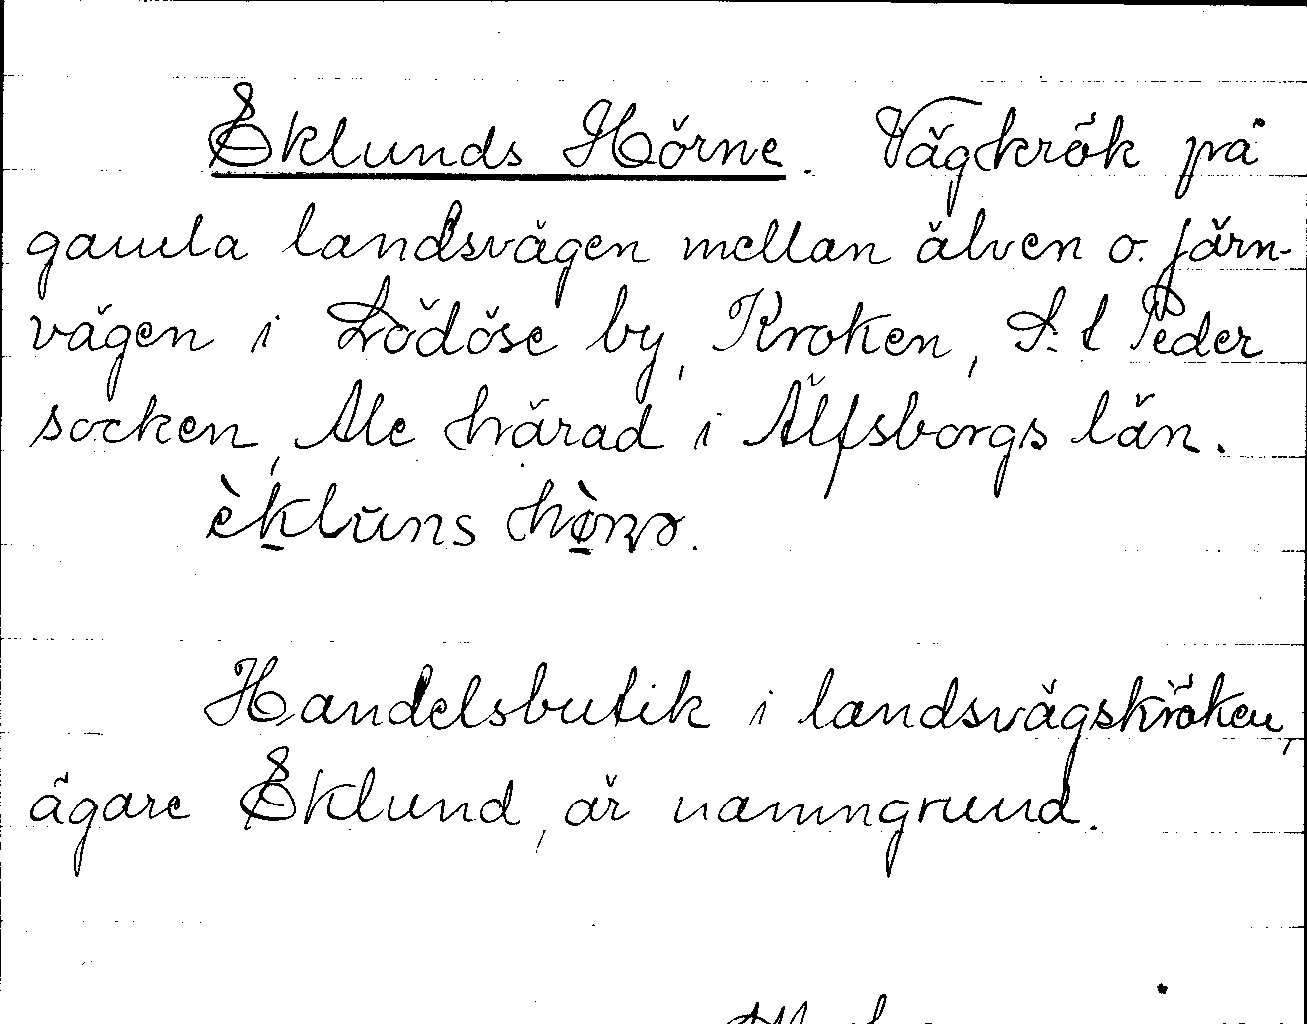 Eklunds Hörne. Vägkrök på
gamla landsvägen mellan älven o. järn-
vägen i Lödöse by, Kroken, S:t Peder
socken, Ale härad i Älfsborgs län.
èklūns hö̀nə.
Handelsbutik i landsvägskröken,
ägare Eklund, är namngrund.